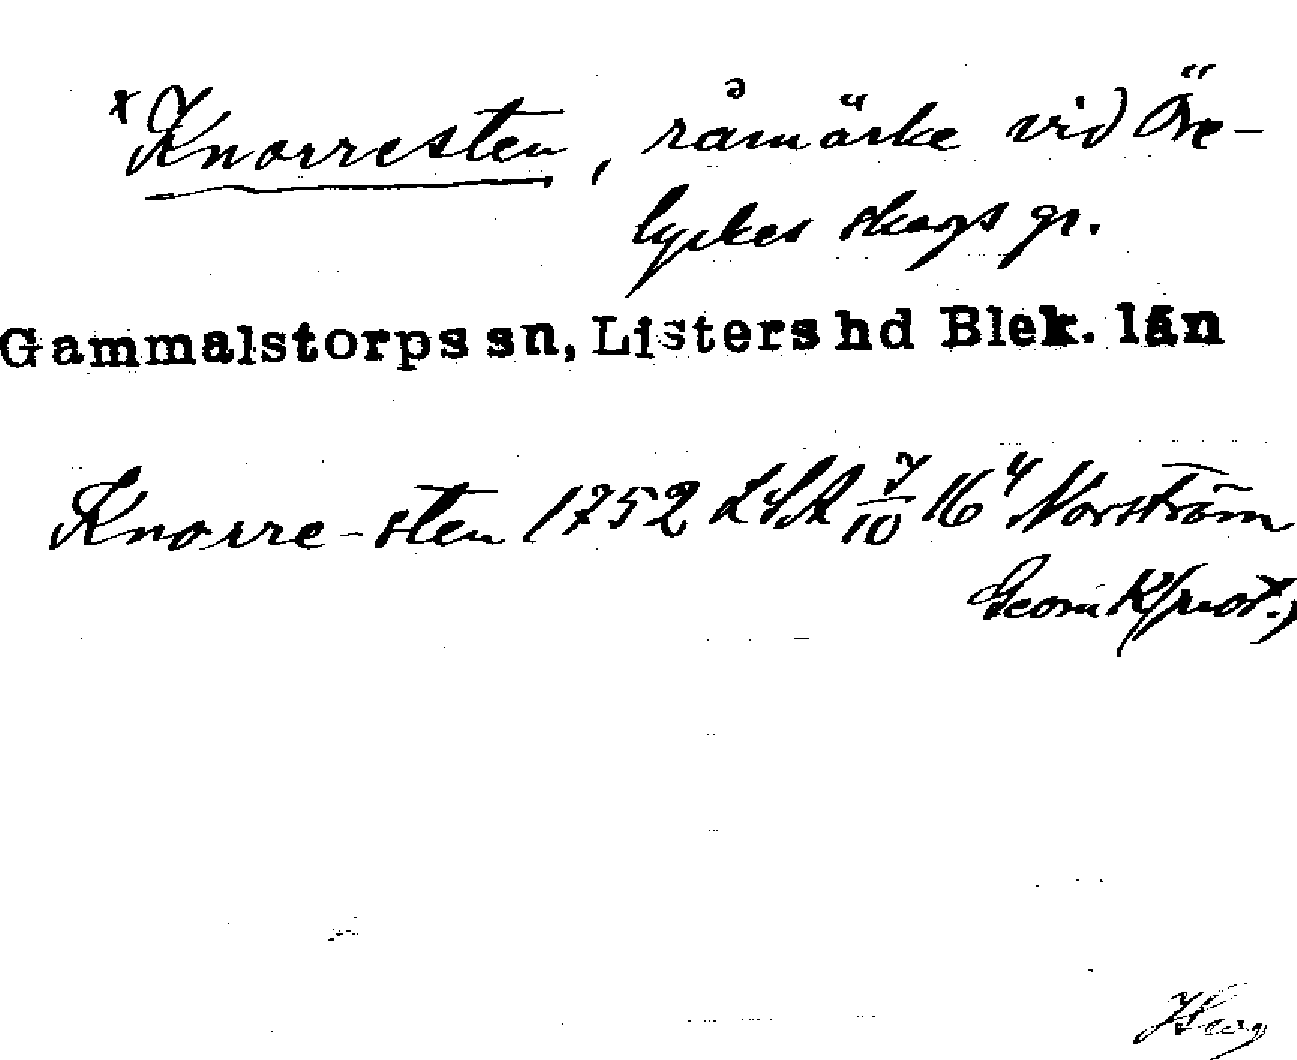 x Knorresten, råmärke vid Öre-
lyckes skogs gr.
Gammalstorps sn, Listers hd Blek. län
Knorre-sten 1752 LSA 7/10 16" Norström
Geom Kprot.,